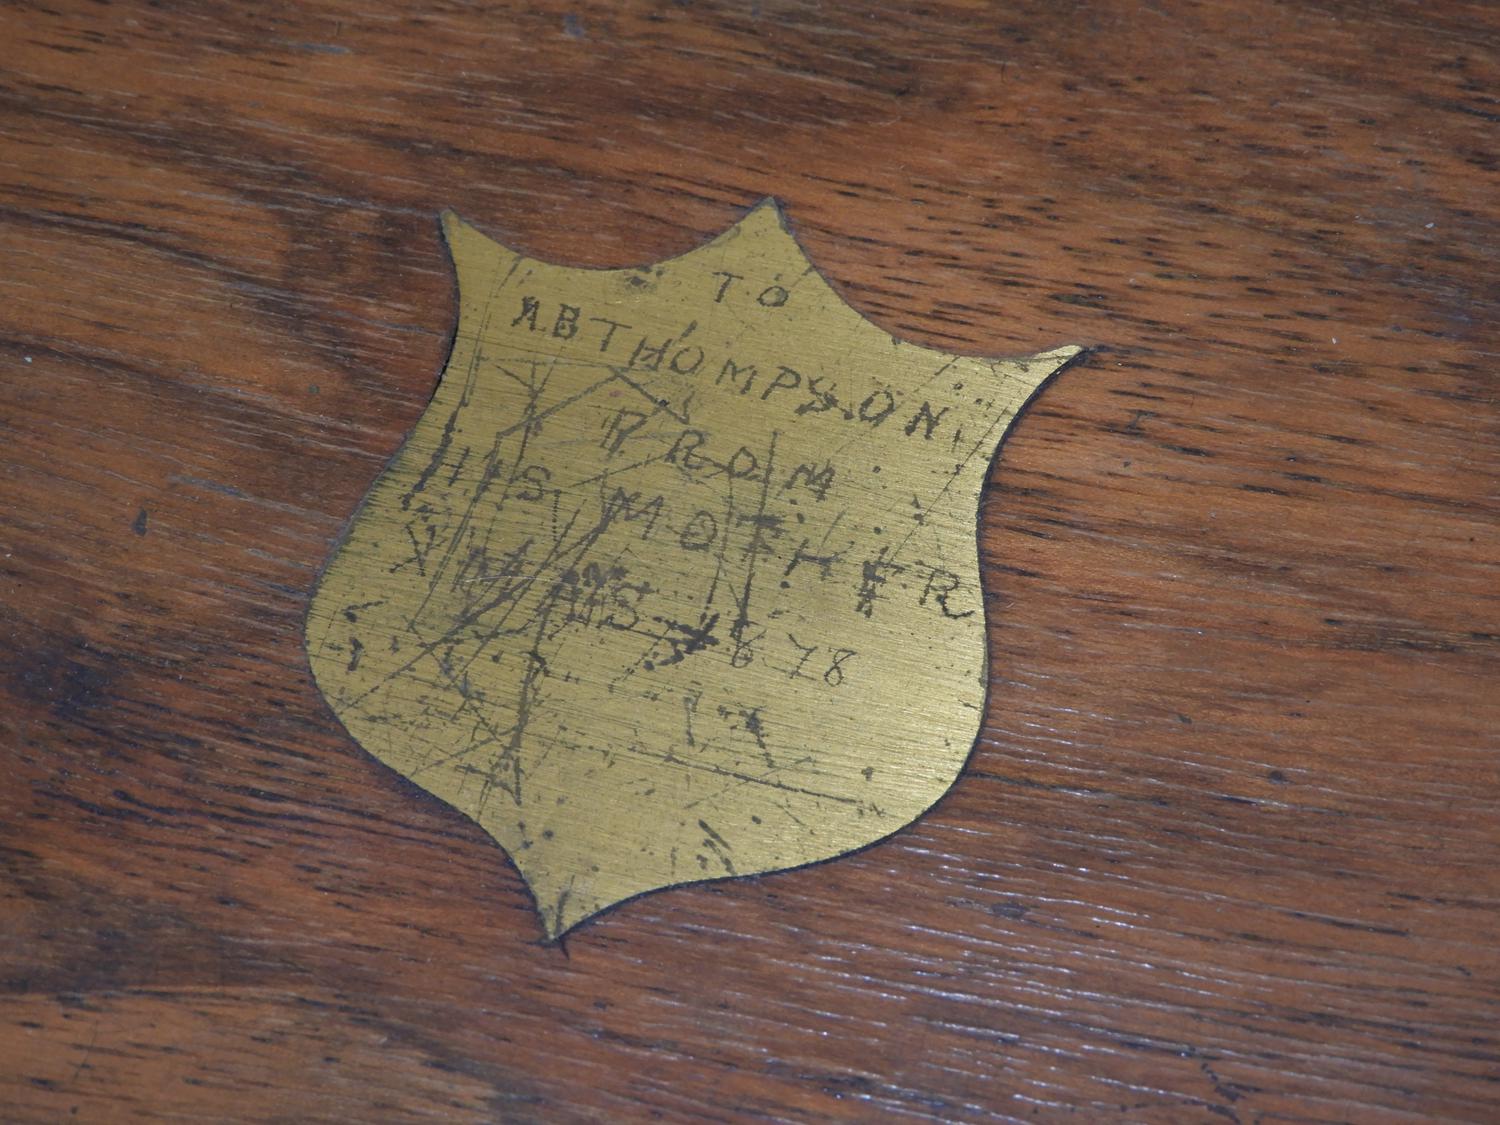 TO
AB THOMPSON
FROM
HIS MOTHER
XMAS 1878